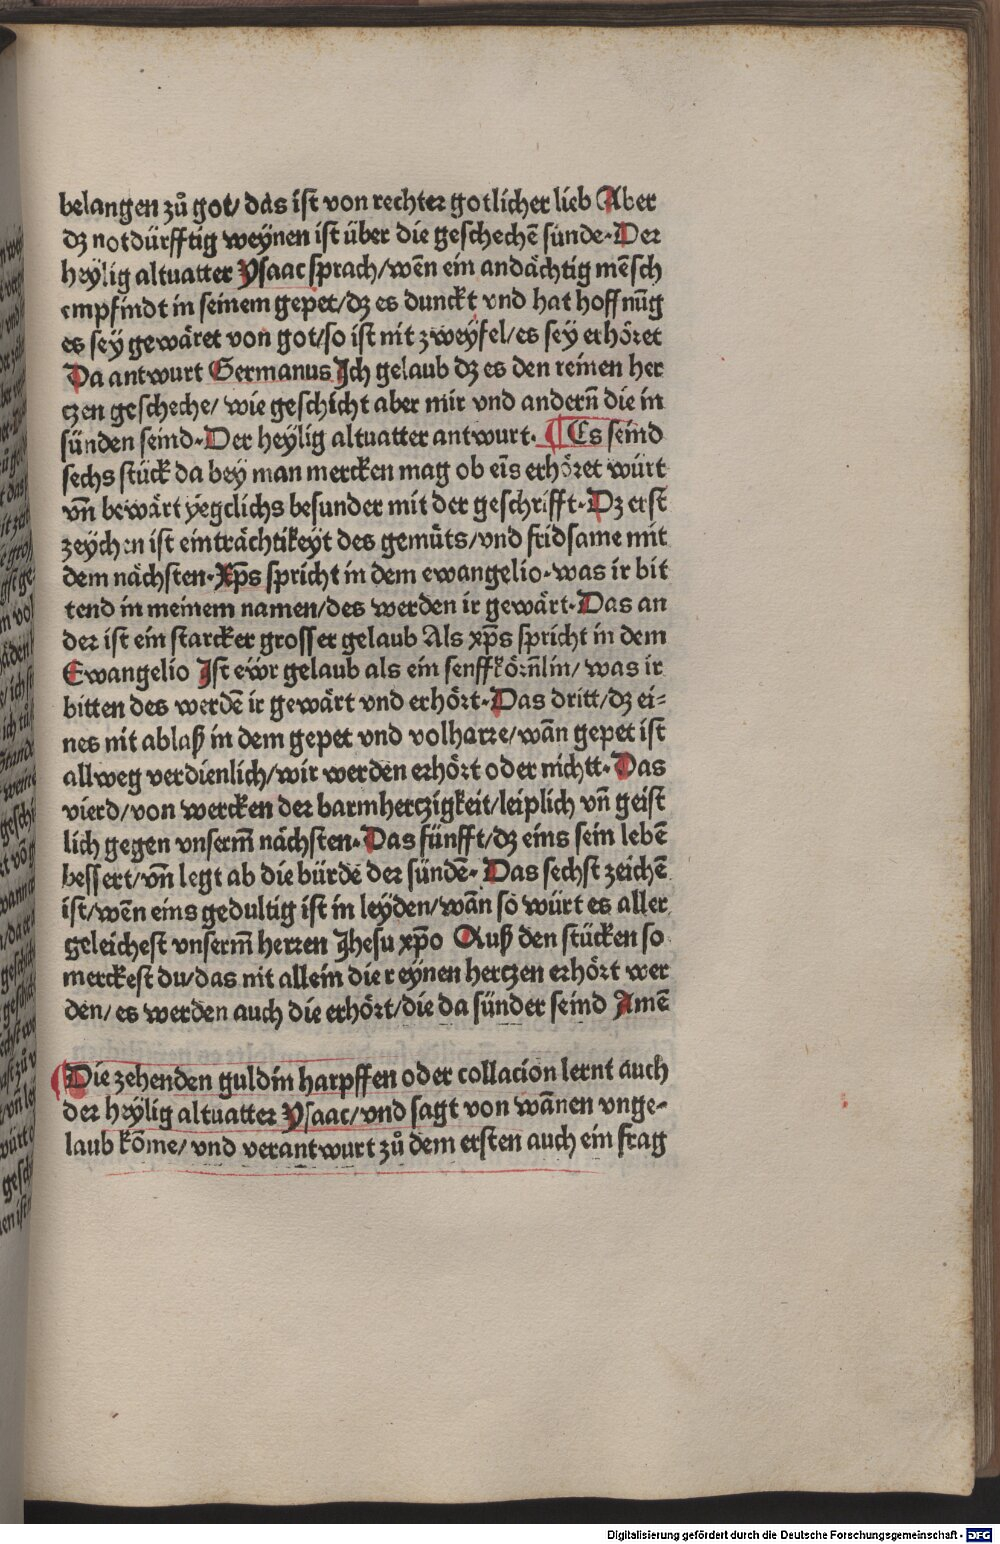 belangen zů got/ das ist von rechter gotlicher lieb Aber
dz notdürfftig weynen ist über die geschechē sünde· Der
heylig altuatter Ysaac sprach/wēn ein andächtig mēsch
empfindt in seinem gepet/dz es dunckt vnd hat hoffnūg
es sey gewäret von got/so ist nit zweyfel/es sey erhöret
Da antwurt Germanus Ich gelaub dz es den reinen her
czen gescheche/ wie geschicht aber mir vnd andern̄ die in
sünden seind· Der heylig altuatter antwurt. ¶ Es seind
sechs stück da bey man mercken mag ob eīs erhöret würt
vn̄ bewärt yegclichs besunder mit der geschrifft· Dz erst
zeychen ist einträchtikeyt des gemüts/vnd fridsame mit
dem nächsten· Xp̄s spricht in dem ewangelio· was ir bit
tend in meinem namen/des werden ir gewärt· Das an
der ist ein starcker grosser gelaub Als xp̄s spricht in dem
Ewangelio Ist ewr gelaub als ein senffkörn̄lin/ was ir
bitten des werdē ir gewärt vnd erhört· Das dritt/dz ei-
nes nit ablaß in dem gepet vnd volharre/wān gepet ist
allweg verdienlich/wir werden erhört oder nichtt· Das
vierd/von wercken der barmhertzigkeit/leiplich vn̄ geist
lich gegen vnserm̄ nächsten· Das fünfft/dz eins sein lebē
bessert/vn̄ legt ab die bürde der sündē· Das sechst zeichē
ist/wēn eins gedultig ist in leyden/wān so würt es aller
geleichest vnserm̄ herren Jhesu xp̄o Auß den stücken so
merckest du/das nit allein die reynen hertzen erhört wer
den/ es werden auch die erhört/die da sünder seind Amē
¶ Die zehenden guldin harpffen oder collacion lernt auch
der heylig altuatter Ysaac/vnd sagt von wānen vnge-
laub kōme/ vnd verantwurt zů dem ersten auch ein frag
Digitalisierung gefördert durch die Deutsche Forschungsgemeinschaft - DFG